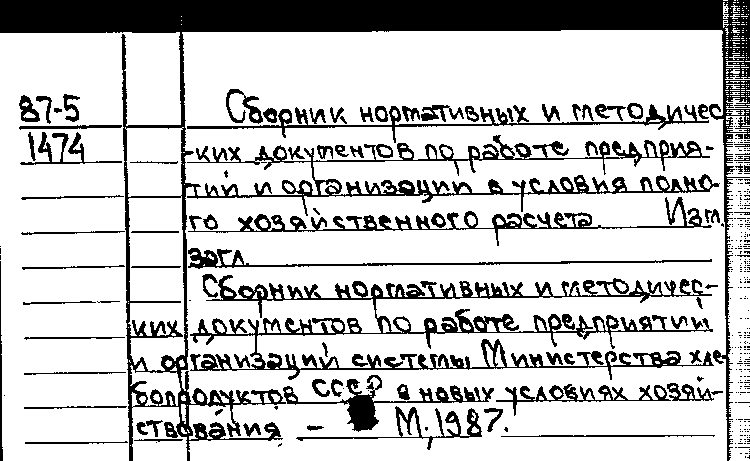 87-5
1474
Сборник нормативных и методичес-
ких документов по работе предприя-
тий и организаций в условия полно-
го хозяйственного расчета. Изм.
загл.
Сборник нормативных и методичес-
ких документов по работе предприятий
и организаций системы Министерства хле-
бопродуктов СССР в новых условиях хозяй-
ствования – М., 1987.